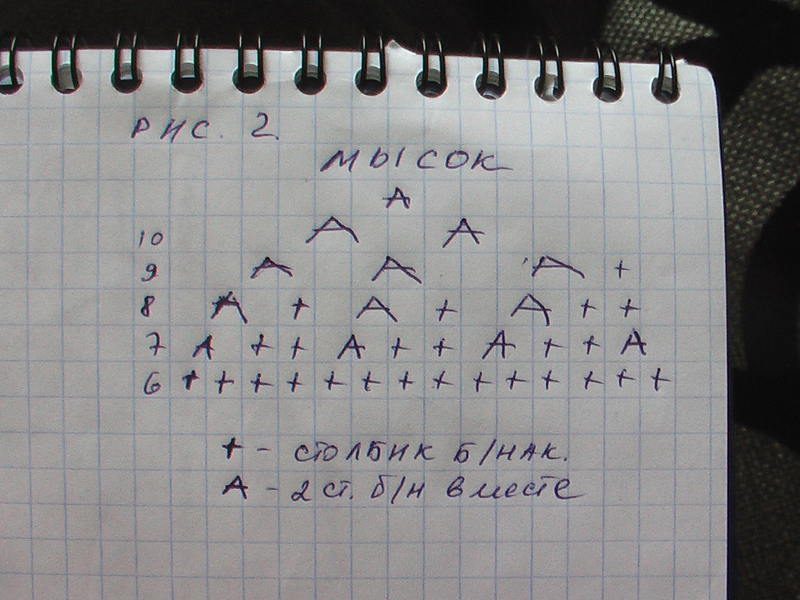 РИС. 2.
МЫСОК
А
10 А А
9 А А А +
8 А + А + А + +
7 А + + А + + А + + А
6 + + + + + + + + + + + + + +
+ - СТОЛБИК Б/НАК.
А - 2 ст. б/н вместе